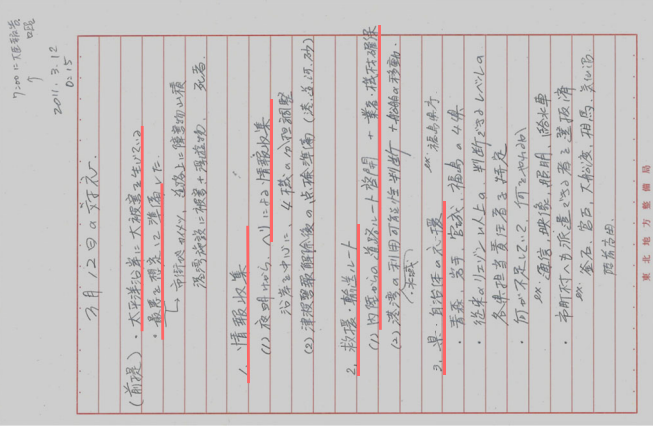 7:00に大臣報告
2011. 3. 12
0:15
3月12日の方針
(前提)・太平洋沿岸に大被害を生じている
・最悪を想定して準備した。
→市街地のみならず、道路上に障害物山積
港湾施設に被害+浮遊物、死者
1. 情報収集
(1) 夜明けから、ヘリによる情報収集
沿岸を中心に、4機の分担調整
(2) 津波警報解除後の点検準備(道、河、砂)
2. 救援・輸送ルート
(1) 内陸からの道路ルート啓開 + 業者・機材確保
(2) 港湾の利用可能性判断 + 船舶の移動
3. 県・自治体の応援 ex. 福島県庁
・青森、岩手、宮城、福島の4県
・従来のリエゾン以上の、判断できるレベルの
各県担当責任者を特定
・何が不足していて、何をやれるか
ex. 通信、映像、照明、給水車
・市町村へも派遣できる者を登板済
ex. 釜石、宮古、大船渡、相馬
陸前高田
東北地方整備局